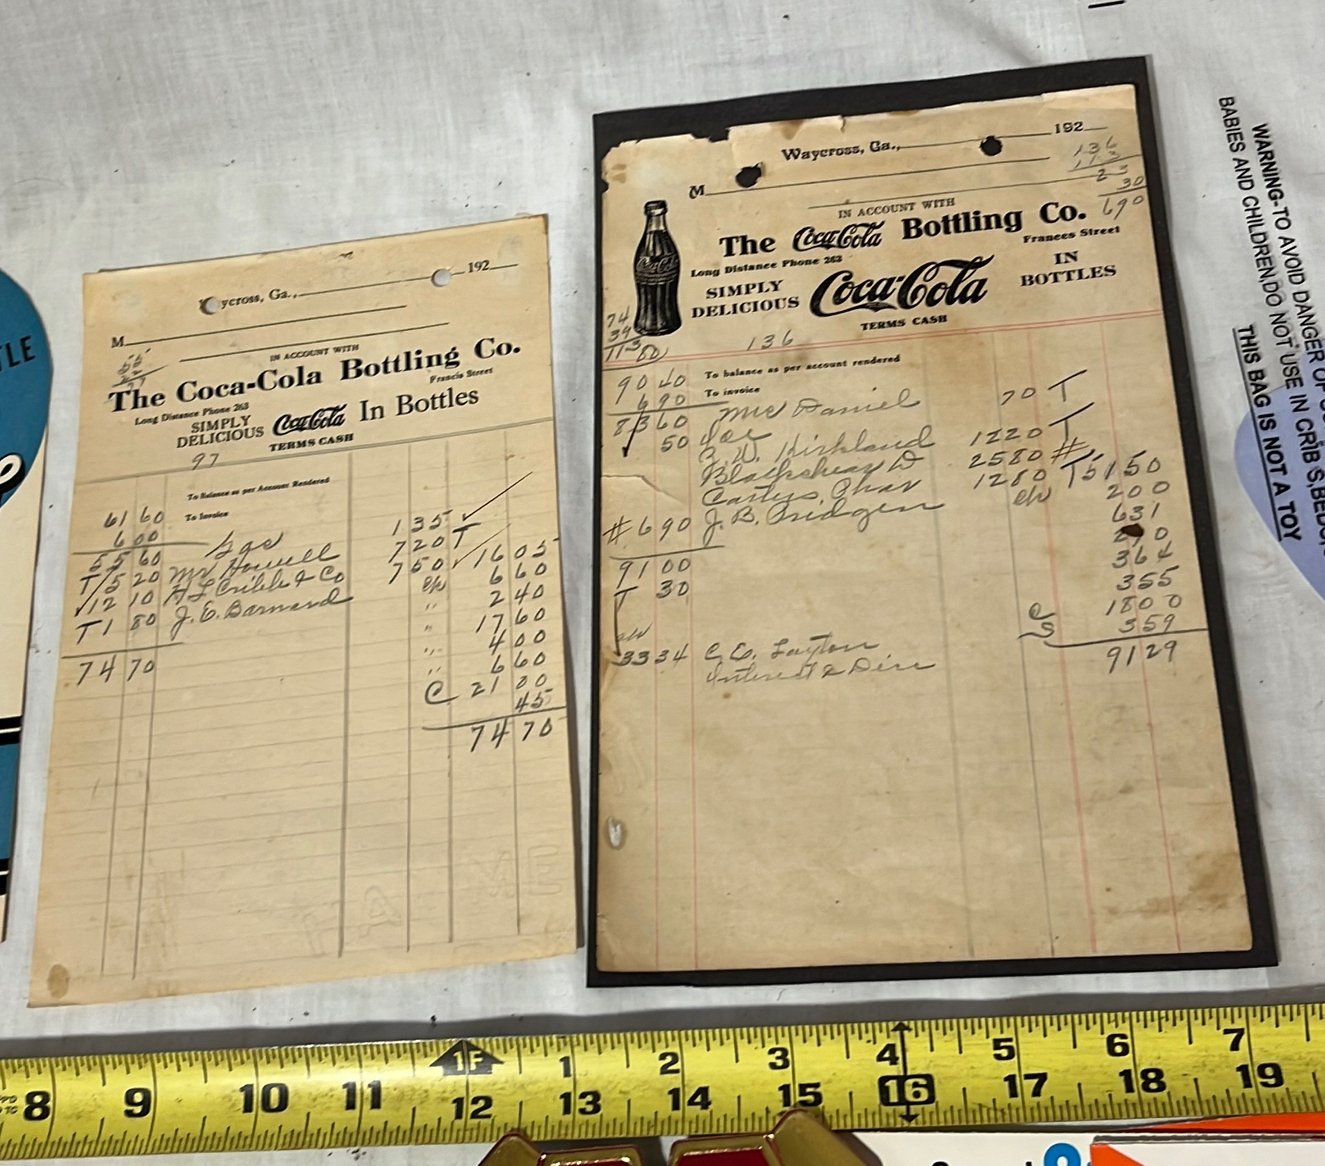 TLE
Waycross, Ga., 192
M
IN ACCOUNT WITH
The Coca-Cola Bottling Co.
Long Distance Phone 263
Francis Street
SIMPLY
DELICIOUS
Coca-Cola In Bottles
TERMS CASH
97
To Balance as per Account Rendered
61 60 To Invoice
6 00 Gas 1 35
55 60 Mr Howell 7 20 T
T/5 20 H L Cribb & Co 7 50 16 05
12 10 J. E. Barnard c/o 6 60
T 1 80 " 2 40
74 70 " 17 60
" 4 00
" 6 60
C 21 20
45
74 70
Waycross, Ga., 192
M
136
30
690
IN ACCOUNT WITH
The Coca-Cola Bottling Co.
Long Distance Phone 262
Frances Street
SIMPLY
DELICIOUS
Coca-Cola
IN
BOTTLES
TERMS CASH
74
39
113
136
To balance as per account rendered
90 40 To invoice
6 90 McDaniel 70 T
83 60
50 Kirkland 12 20 T
Blackshear 25 80 #
Carter, Char 12 80 T 51 50
# 6 90 J. B. Pridgen 2 00
6 31
91 00 3 64
T 30 3 55
18 00
33 34 C. E. Layton 3 59
Interest & Disc 91 29
WARNING-TO AVOID DANGER OF
BABIES AND CHILDREN, DO NOT USE IN CRIBS, BEDS,
THIS BAG IS NOT A TOY
1F 1 2 3 4 5 6 7
8 9 10 11 12 13 14 15 16 17 18 19